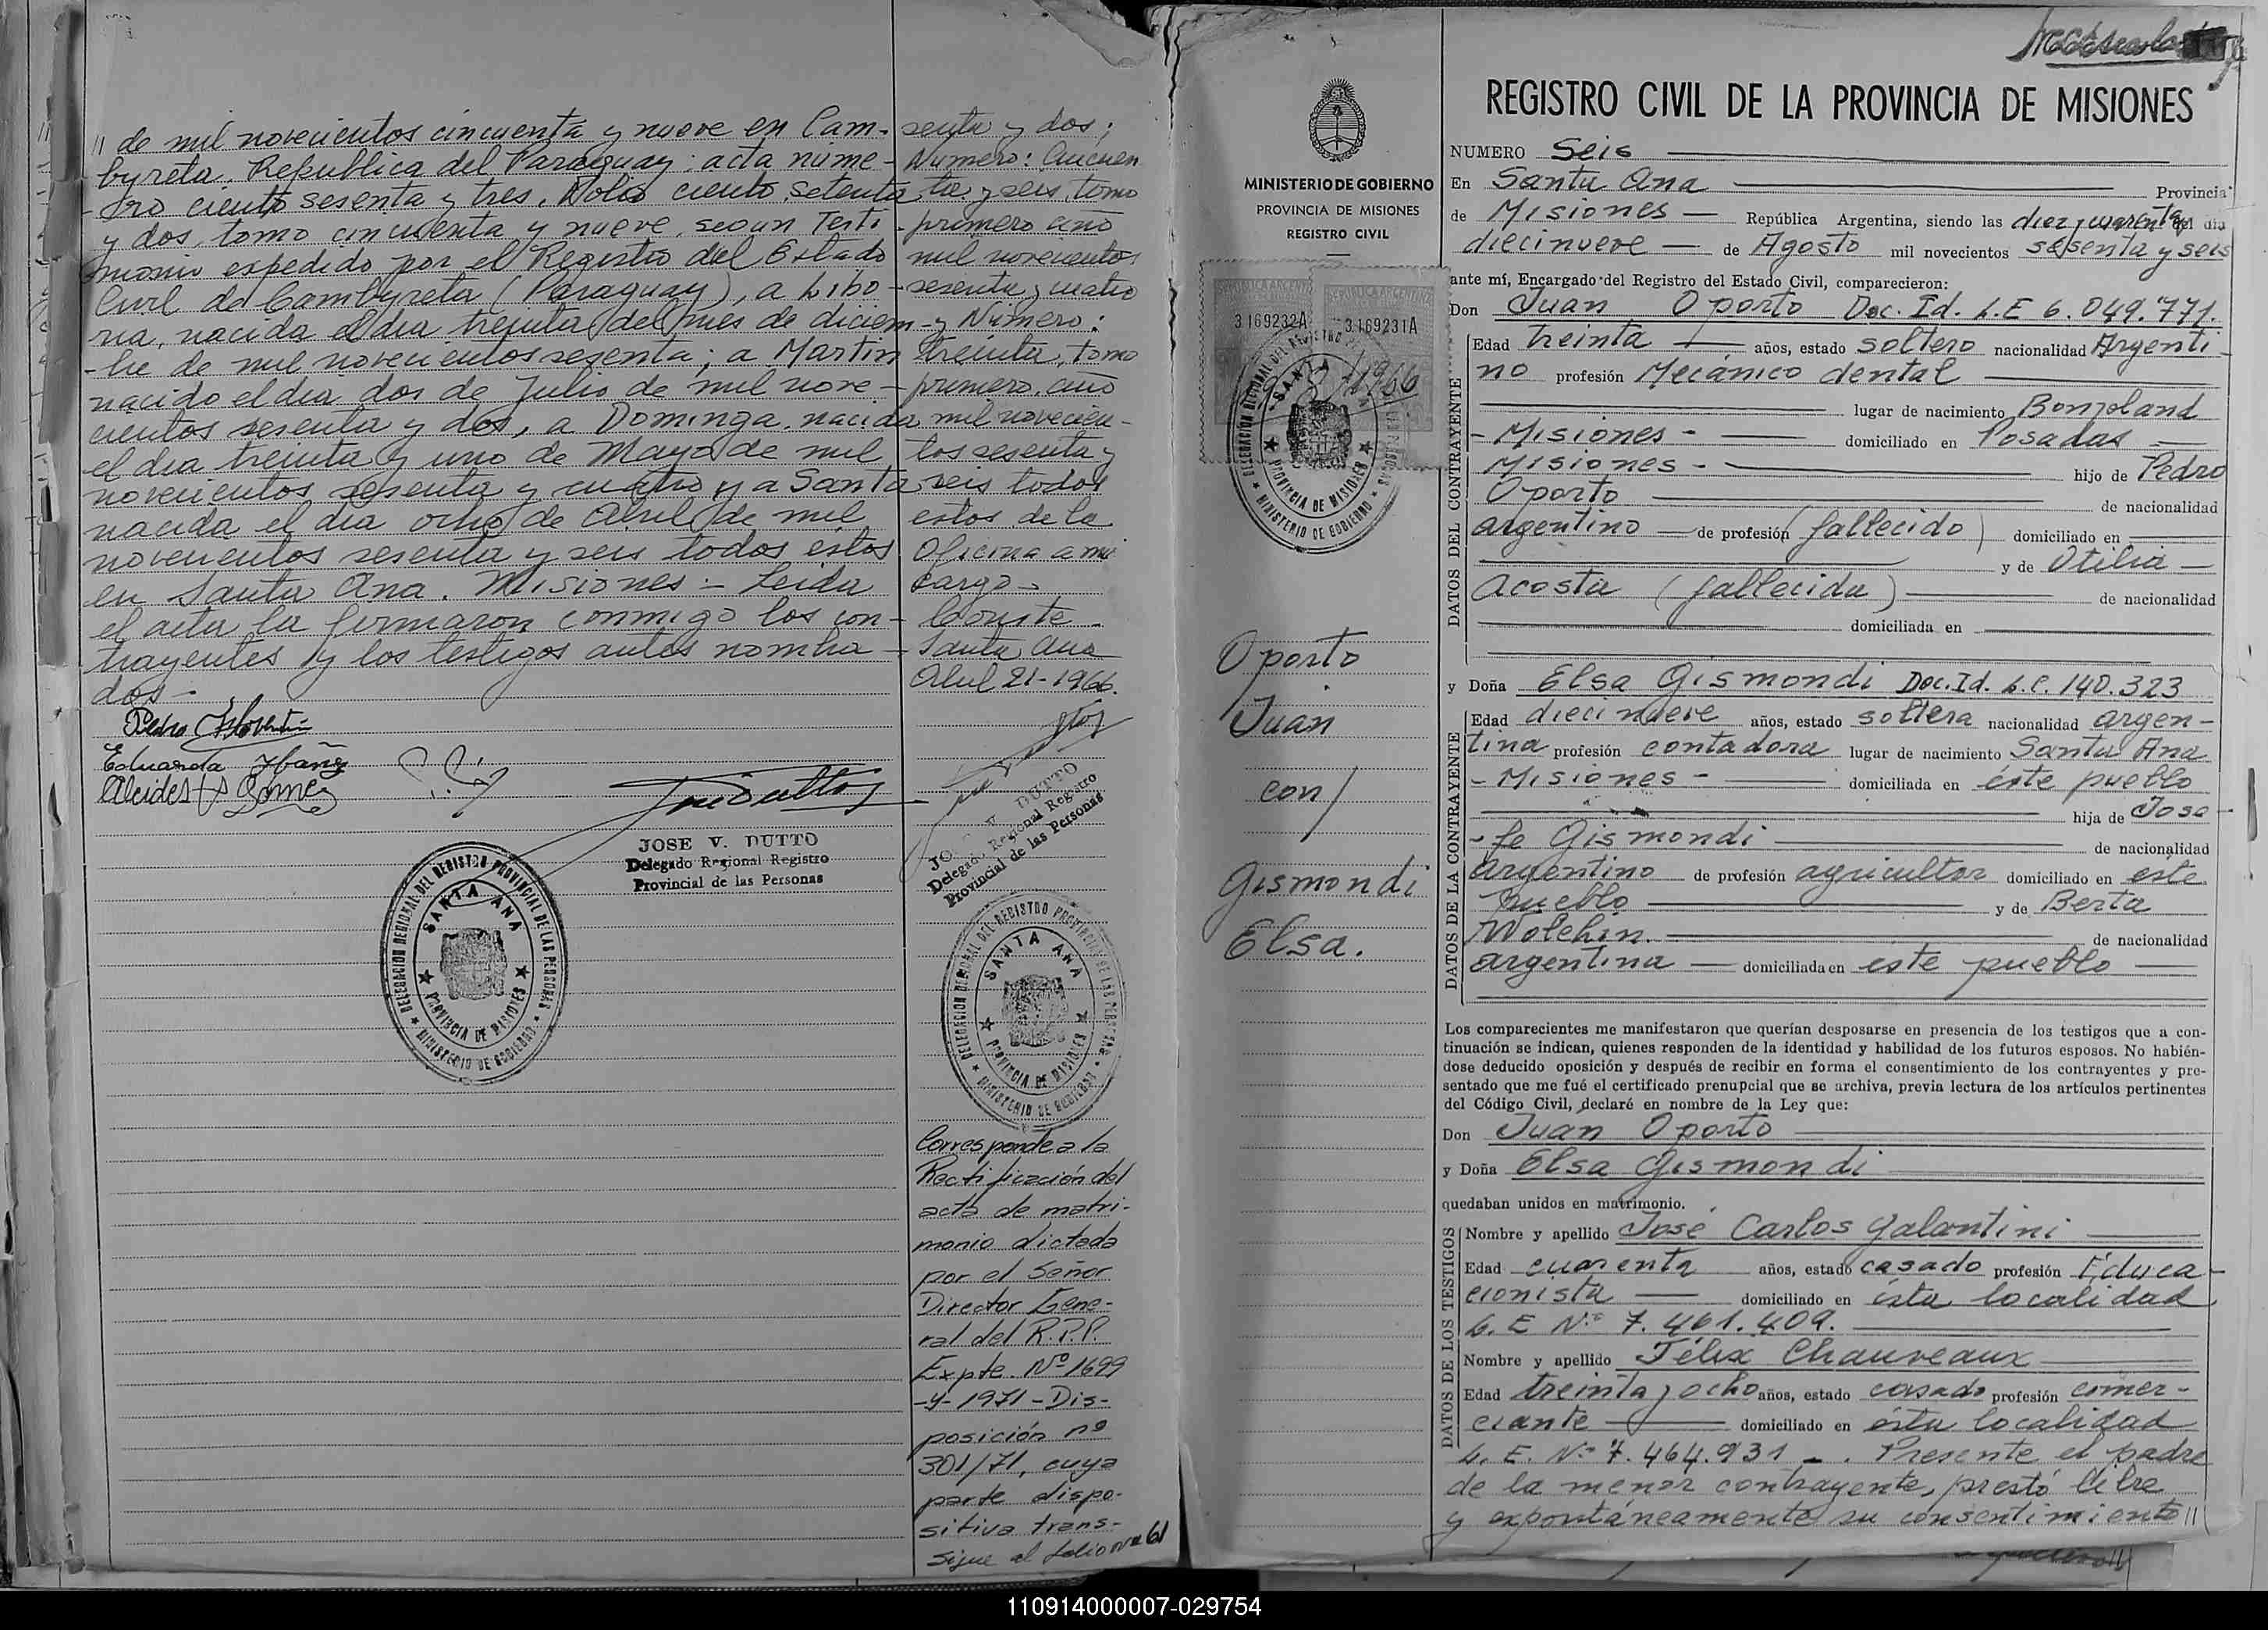 // de mil novecientos cincuenta y nueve en Cam-
byreta. Republica del Paraguay: acta nume-
-ro ciento sesenta y tres, Folio ciento setenta
y dos, tomo cincuenta y nueve, segun Testi-
monio expedido por el Registro del Estado
Civil de Cambyreta (Paraguay), a Libo-
ria, nacida el dia treinta del mes de diciem-
-bre de mil novecientos sesenta; a Martin
nacido el dia dos de Julio de mil nove-
cientos sesenta y dos, a Dominga, nacida
el dia treinta y uno de Mayo de mil
novecientos sesenta y cuatro y a Santa
nacida el dia ocho de Abril de mil
novecientos sesenta y seis todos estos
en Santa Ana. Misiones - Leida
el acta la firmaron conmigo los con-
trayentes y los testigos antes nombra-
dos-
Eduarda Ibañez
Alcides Gomez
JOSE V. DUTTO
Delegado Regional Registro
Provincial de las Personas
DELEGACION REGIONAL DEL REGISTRO PROVINCIAL DE LAS PERSONAS
SANTA ANA
PROVINCIA DE MISIONES
MINISTERIO DE GOBIERNO
senta y dos;
Numero: Cincuen
ta y seis, tomo
primero año
mil novecientos
sesenta y cuatro
y Número:
treinta, tomo
primero, año
mil novecien-
tos sesenta y
seis todos
estos de la
Oficina a mi
cargo-
Conste-
Santa Ana
Abril 21-1966.
DUTTO
Delegado Regional Registro
Provincial de las Personas
DELEGACION REGIONAL DEL REGISTRO PROVINCIAL DE LAS PERSONAS
SANTA ANA
PROVINCIA DE MISIONES
MINISTERIO DE GOBIERNO
Corresponde a la
Rectificación del
acta de matri-
monio dictada
por el Señor
Director Gene-
ral del R.P.P.
Expte. Nº 1699
-Y-1971-Dis-
posición nº
301/71, cuya
parte dispo-
sitiva trans-
sigue al folio nº 61
MINISTERIO DE GOBIERNO
PROVINCIA DE MISIONES
REGISTRO CIVIL
REPUBLICA ARGENTINA
3169232A
3169231A
DELEGACION REGIONAL DEL REGISTRO
SANTA
PROVINCIA DE MISIONES
MINISTERIO DE GOBIERNO
Oporto
Juan
con/
Gismondi
Elsa.
REGISTRO CIVIL DE LA PROVINCIA DE MISIONES
NUMERO Seis
En Santa Ana Provincia
de Misiones - República Argentina, siendo las diez y cuarenta del día
diecinueve - de Agosto mil novecientos sesenta y seis
ante mí, Encargado del Registro del Estado Civil, comparecieron:
Don Juan Oporto Doc. Id. L.E 6.049.771.
DATOS DEL CONTRAYENTE
Edad treinta años, estado soltero nacionalidad Argenti-
no profesión Mecánico dental
lugar de nacimiento Bonpland
- Misiones - domiciliado en Posadas
Misiones - hijo de Pedro
Oporto de nacionalidad
argentino - de profesión (fallecido) domiciliado en
y de Otilia -
Acosta (fallecida) de nacionalidad
domiciliada en
y Doña Elsa Gismondi Doc. Id. L.C. 140.323
DATOS DE LA CONTRAYENTE
Edad diecinueve años, estado soltera nacionalidad argen-
tina profesión contadora lugar de nacimiento Santa Ana
- Misiones - domiciliada en éste pueblo
hija de Jose-
- fe Gismondi de nacionalidad
argentino de profesión agricultor domiciliado en este
pueblo y de Berta
Wolchin. de nacionalidad
argentina - domiciliada en este pueblo
Los comparecientes me manifestaron que querían desposarse en presencia de los testigos que a con-
tinuación se indican, quienes responden de la identidad y habilidad de los futuros esposos. No habién-
dose deducido oposición y después de recibir en forma el consentimiento de los contrayentes y pre-
sentado que me fué el certificado prenupcial que se archiva, previa lectura de los artículos pertinentes
del Código Civil, declaré en nombre de la Ley que:
Don Juan Oporto
y Doña Elsa Gismondi
quedaban unidos en matrimonio.
DATOS DE LOS TESTIGOS
Nombre y apellido José Carlos Galantini
Edad cuarenta años, estado casado profesión Educa-
cionista domiciliado en ésta localidad
L. E Nº 7.461.409.
Nombre y apellido Félix Chauveaux
Edad treinta y ocho años, estado casado profesión comer-
ciante domiciliado en ésta localidad
L. E. Nº 7.464.931 - . Presente el padre
de la menor contrayente, prestó libre
y expontáneamente su consentimiento //
110914000007-029754